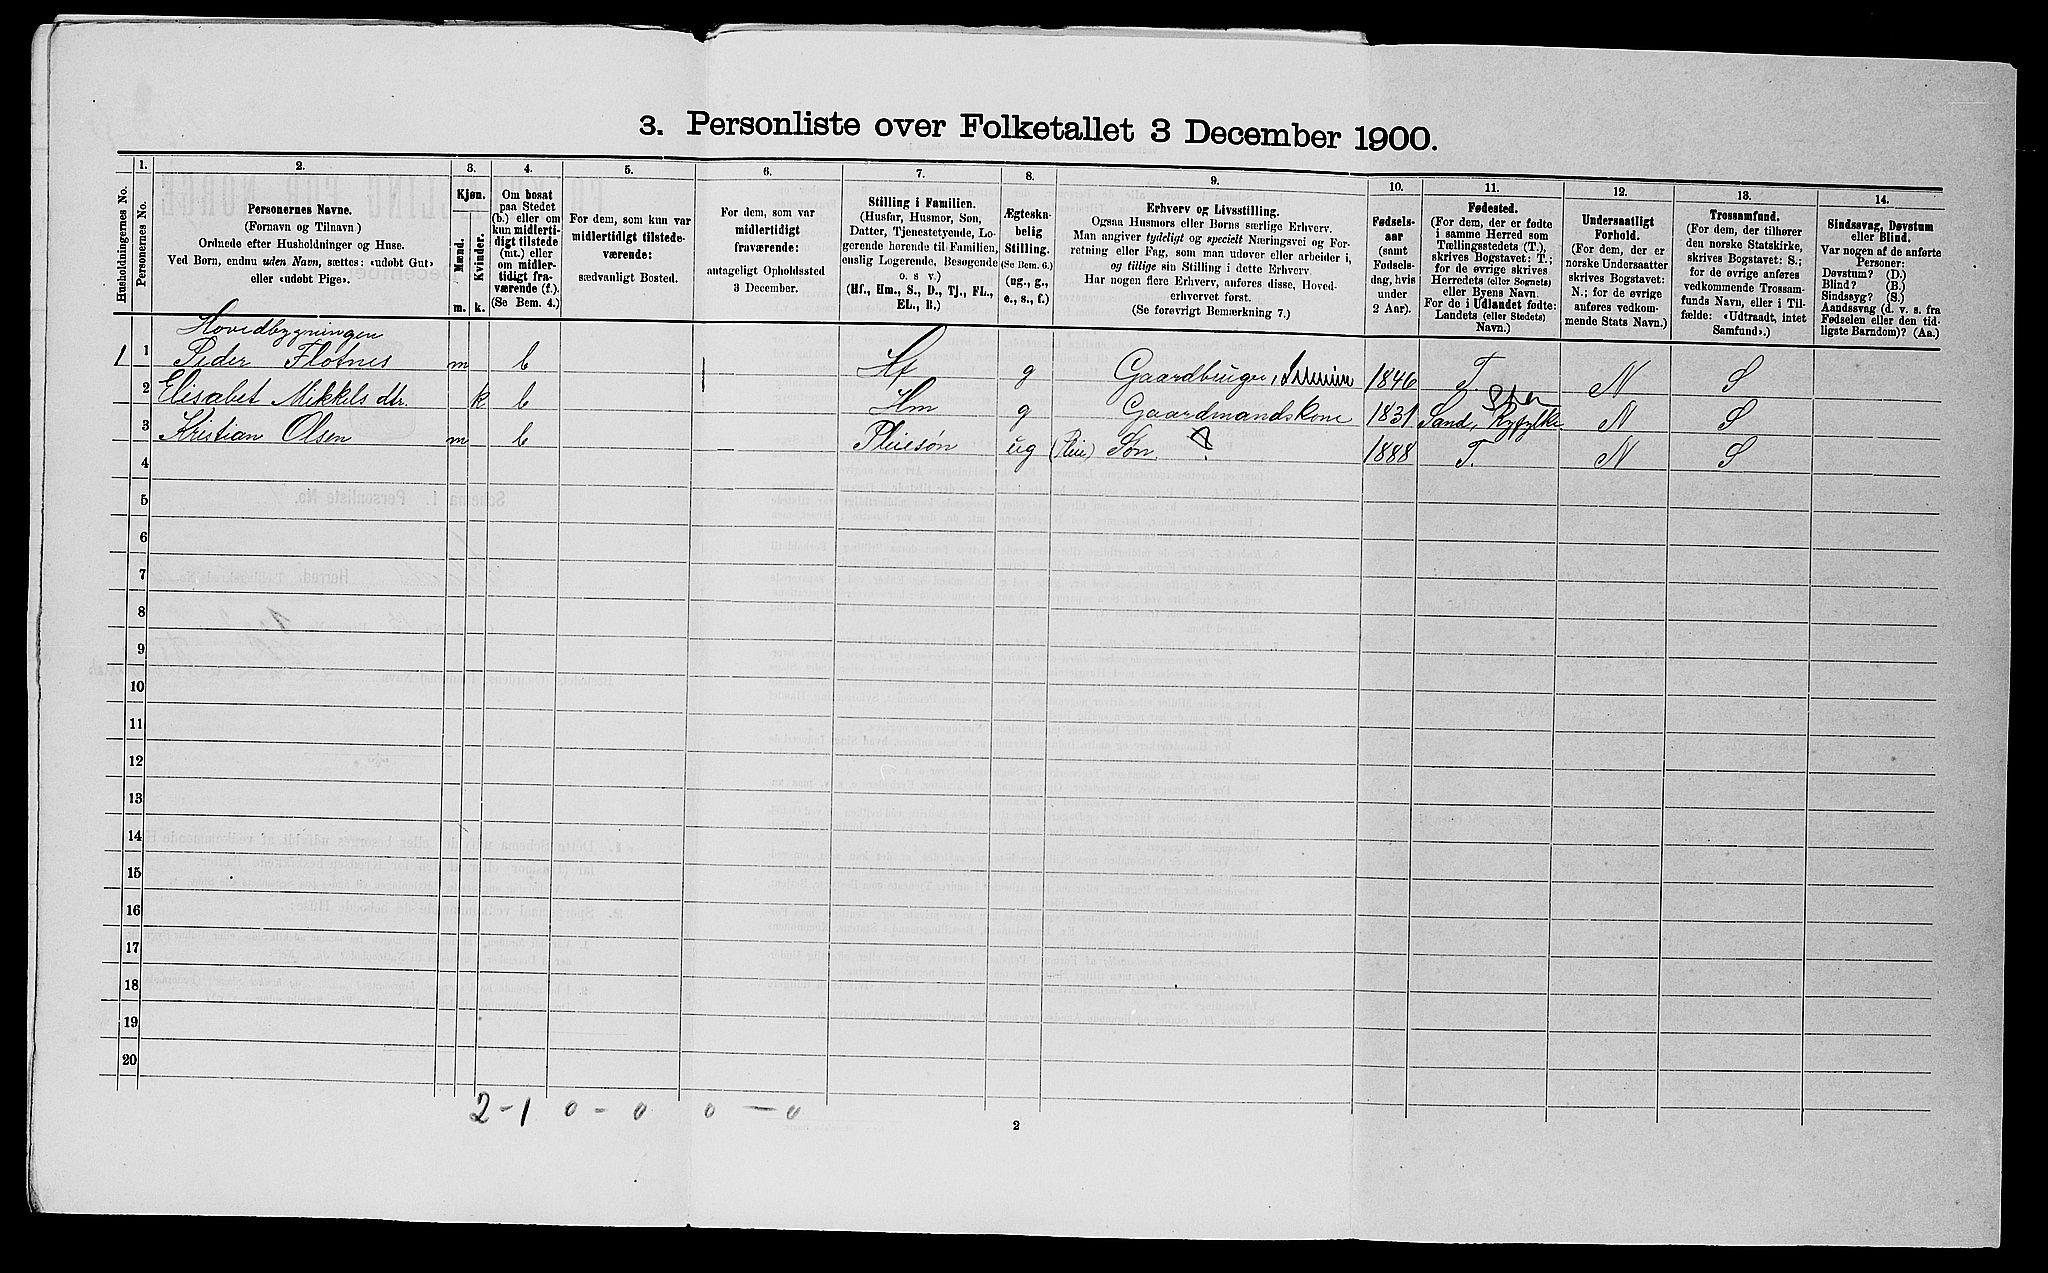 3. Personliste over Folketallet 3 December 1900.
Husholdningernes No.
1.
Personernes No.
2.
Personernes Navne.
(Fornavn og Tilnavn)
Ordnede efter Husholdninger og Huse.
Ved Børn, endnu uden Navn, sættes: «udøbt Gut»
eller «udøbt Pige».
3.
Kjøn.
Mænd.
Kvinder.
m. k.
4.
Om bosat
paa Stedet
(b.) eller om
kun midlerti-
digt tilstede
(mt.) eller
om midler-
tidigt fra-
værende (f.).
(Se Bem. 4.)
5.
For dem, som kun var
midlertidigt tilstede-
værende:
sædvanligt Bosted.
6.
For dem, som var
midlertidigt
fraværende:
antageligt Opholdssted
3 December.
7.
Stilling i Familien.
(Husfar, Husmor, Søn,
Datter, Tjenestetyende, Lo-
gerende hørende til Familien,
enslig Logerende, Besøgende
o. s. v.)
(Hf., Hm., S., D., Tj., FL.,
EL., B.)
8.
Ægteska-
belig
Stilling.
(Se Bem. 6.)
(ug., g.,
e., s., f.)
9.
Erhverv og Livsstilling.
Ogsaa Husmors eller Børns særlige Erhverv.
Man angiver tydeligt og specielt Næringsvei og For-
retning eller Fag, som man udøver eller arbeider i,
og tillige sin Stilling i dette Erhverv.
Har nogen flere Erhverv, anføres disse, Hoved-
erhvervet først.
(Se forøvrigt Bemærkning 7.)
10.
Fødsels-
aar
(samt
Fødsels-
dag, hvis
under
2 Aar).
11.
Fødested.
(For dem, der er fødte
i samme Herred som
Tællingsstedets (T.),
skrives Bogstavet: T.;
for de øvrige skrives
Herredets (eller Sognets)
eller Byens Navn.
For de i Udlandet fødte:
Landets (eller Stedets)
Navn.)
12.
Undersaatligt
Forhold.
(For dem, der er
norske Undersaatter
skrives Bogstavet:
N.; for de øvrige
anføres vedkom-
mende Stats Navn.)
13.
Trossamfund.
(For dem, der tilhører
den norske Statskirke,
skrives Bogstavet: S.;
for de øvrige anføres
vedkommende Trossam-
funds Navn, eller i Til-
fælde: «Udtraadt, intet
Samfund».)
14.
Sindssvag, Døvstum
eller Blind.
Var nogen af de anførte
Personer:
Døvstum? (D.)
Blind? (B.)
Sindssyg? (S.)
Aandssvag (d. v. s. fra
Fødselen eller den tid-
ligste Barndom)? (Aa.)
Hovedbygningen
1 1 Peder Flotnes m b Hf g Gaardbruger, 1846 T. N S
2 Elisabet Mikkels dtr. k b Hm g Gaardmandskone 1831 Sand, Ryfylke N S
3 Kristian Olsen m b Pleiesøn ug (Pleie) Søn ? 1888 T. N S
4
5
6
7
8
9
10
11
12
13
14
15
16
17
18
19
20
2-1 0-0 0-0
2